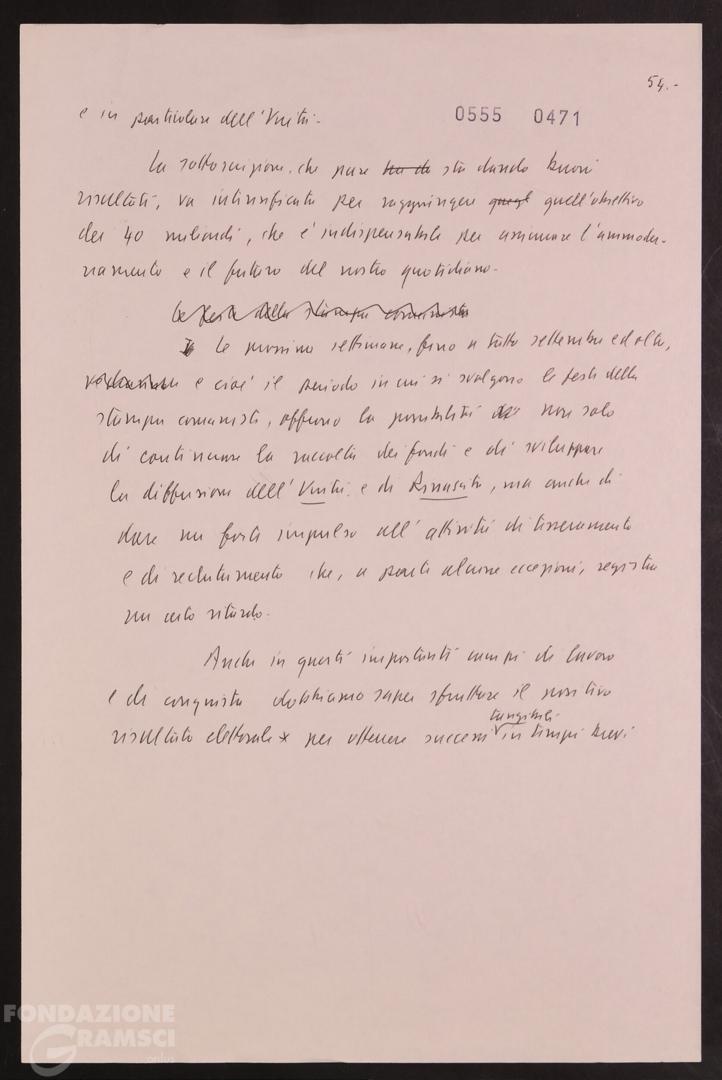 54.-
0555 0471
e in particolare dell'Unità.
La sottoscrizione, che pure sta dando buoni
risultati, va intensificata per raggiungere quell'obiettivo
dei 40 miliardi, che è indispensabile per assicurare l'ammoder-
namento e il futuro del nostro quotidiano.
Le feste della stampa comunista
Le prossime settimane, fino a tutto settembre ed oltre,
e cioè il periodo in cui si svolgono le feste della
stampa comunista, offrono la possibilità non solo
di continuare la raccolta dei fondi e di sviluppare
la diffusione dell'Unità e di Rinascita, ma anche di
dare un forte impulso all'attività di tesseramento
e di reclutamento che, a parte alcune eccezioni, registra
un certo ritardo.
Anche in questi importanti campi di lavoro
e di conquista dobbiamo saper sfruttare il positivo
tangibili
risultato elettorale * per ottenere successi in tempi brevi
FONDAZIONE
GRAMSCI
onlus